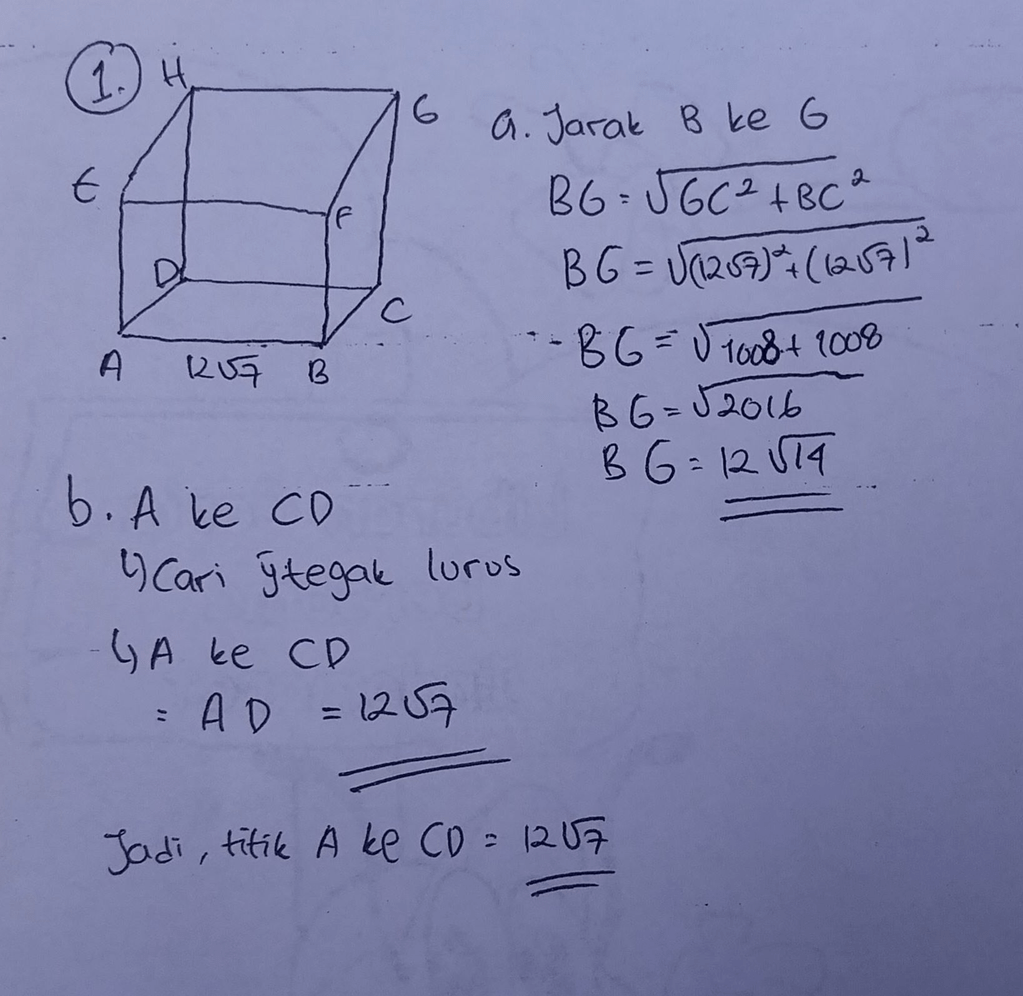 1.
H
G
E
F
D
C
A 12√7 B
a. Jarak B ke G
BG = √GC² + BC²
BG = √(12√7)² + (12√7)²
BG = √1008 + 1008
BG = √2016
BG = 12√14
b. A ke CD
↳ Cari yg tegak lurus
↳ A ke CD
= AD = 12√7
Jadi, titik A ke CD = 12√7